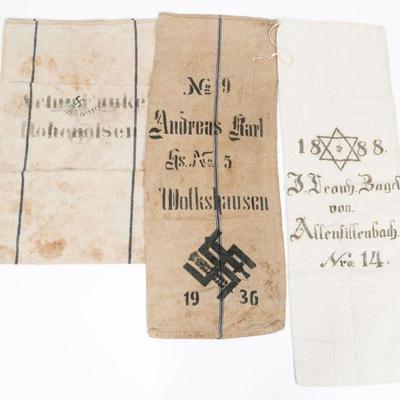 Arthur Funke
Hohenölsen
No 9
Andreas Karl
Hs. No 5
Wolkshausen
19 36
18 88.
J. Leonh. Bagel
von
Allensillenbach.
Nro. 14.